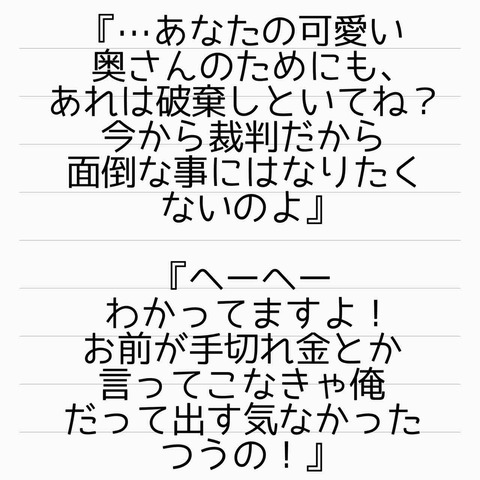 『…あなたの可愛い
奥さんのためにも、
あれは破棄しといてね？
今から裁判だから
面倒な事にはなりたく
ないのよ』
『へーへー
わかってますよ！
お前が手切れ金とか
言ってこなきゃ俺
だって出す気なかった
つうの！』